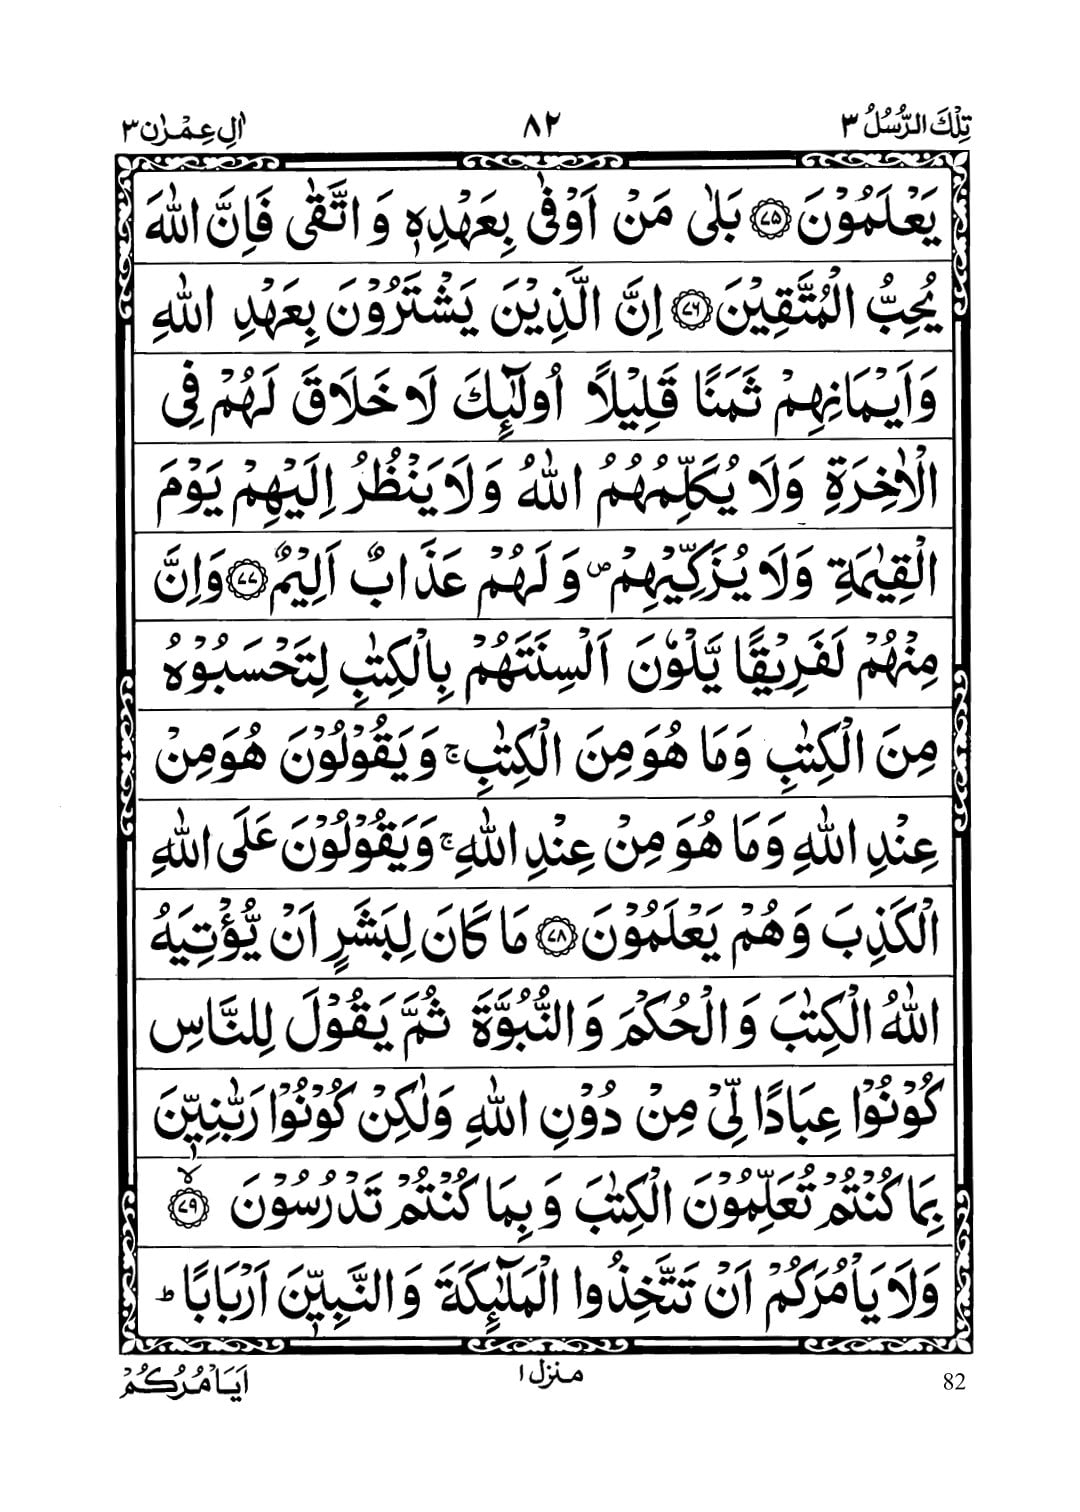 تِلْكَ الرُّسُلُ ٣
٨٢
اٰلِ عِمْرٰن ٣
يَعْلَمُوْنَ ۝٧٥ بَلٰى مَنْ اَوْفٰى بِعَهْدِهٖ وَ اتَّقٰى فَاِنَّ اللّٰهَ
يُحِبُّ الْمُتَّقِيْنَ ۝٧٦ اِنَّ الَّذِيْنَ يَشْتَرُوْنَ بِعَهْدِ اللّٰهِ
وَاَيْمَانِهِمْ ثَمَنًا قَلِيْلًا اُولٰٓئِكَ لَا خَلَاقَ لَهُمْ فِى
الْاٰخِرَةِ وَلَا يُكَلِّمُهُمُ اللّٰهُ وَلَا يَنْظُرُ اِلَيْهِمْ يَوْمَ
الْقِيٰمَةِ وَلَا يُزَكِّيْهِمْ ۖ وَلَهُمْ عَذَابٌ اَلِيْمٌ ۝٧٧ وَاِنَّ
مِنْهُمْ لَفَرِيْقًا يَّلْوٗنَ اَلْسِنَتَهُمْ بِالْكِتٰبِ لِتَحْسَبُوْهُ
مِنَ الْكِتٰبِ وَمَا هُوَ مِنَ الْكِتٰبِ ۚ وَيَقُوْلُوْنَ هُوَ مِنْ
عِنْدِ اللّٰهِ وَمَا هُوَ مِنْ عِنْدِ اللّٰهِ ۚ وَيَقُوْلُوْنَ عَلَى اللّٰهِ
الْكَذِبَ وَهُمْ يَعْلَمُوْنَ ۝٧٨ مَا كَانَ لِبَشَرٍ اَنْ يُّؤْتِيَهُ
اللّٰهُ الْكِتٰبَ وَالْحُكْمَ وَالنُّبُوَّةَ ثُمَّ يَقُوْلَ لِلنَّاسِ
كُوْنُوْا عِبَادًا لِّىْ مِنْ دُوْنِ اللّٰهِ وَلٰكِنْ كُوْنُوْا رَبّٰنِيّٖنَ
بِمَا كُنْتُمْ تُعَلِّمُوْنَ الْكِتٰبَ وَبِمَا كُنْتُمْ تَدْرُسُوْنَ ۙ‏۝٧٩
وَلَا يَاْمُرَكُمْ اَنْ تَتَّخِذُوا الْمَلٰٓئِكَةَ وَالنَّبِيّٖنَ اَرْبَابًا ؕ
82
منزل ١
اَيَاْمُرُكُمْ